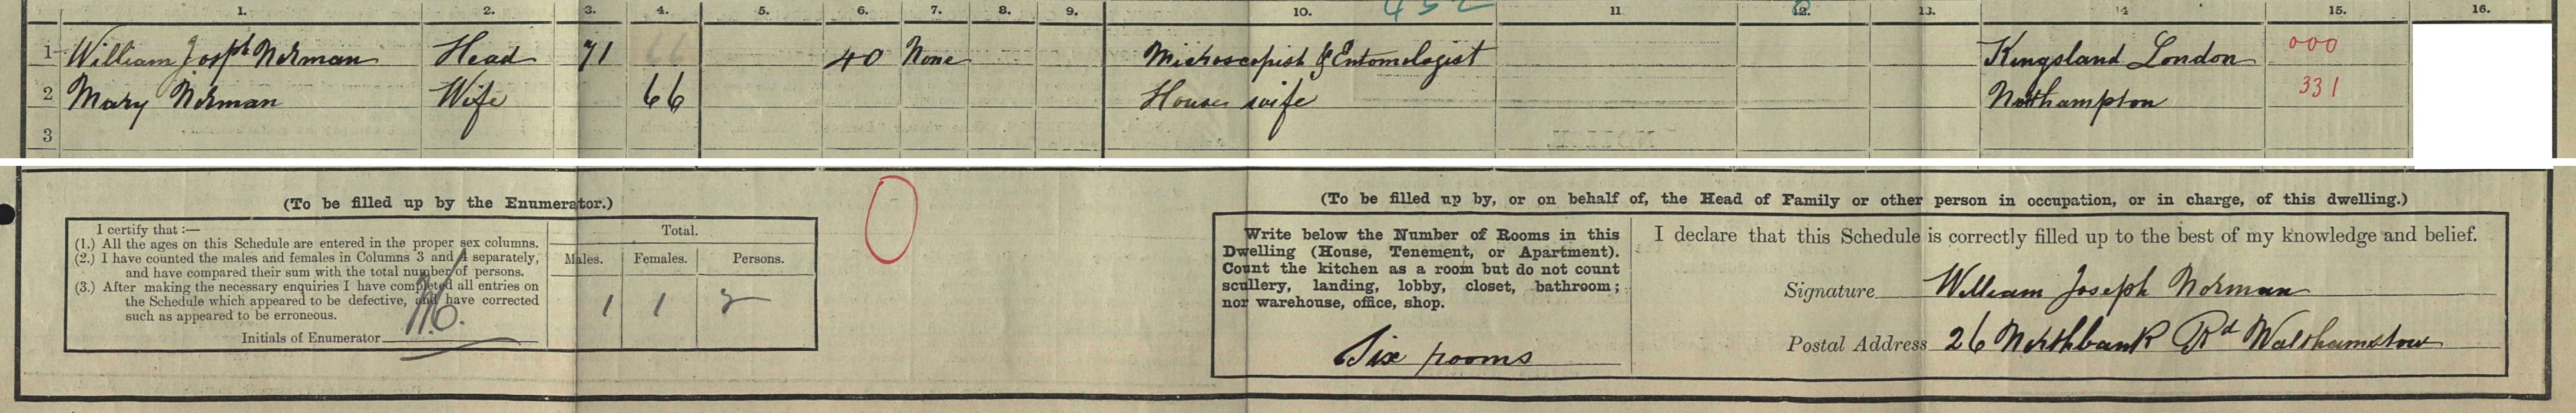 1. 2. 3. 4. 5. 6. 7. 8. 9. 10. 11 12. 13. 14 15. 16.
1 William Joseph Norman Head 71 40 None Microscopist & Entomologist Kingsland London 000
2 Mary Norman Wife 66 House wife Northampton 331
3
(To be filled up by the Enumerator.)
I certify that :—
(1.) All the ages on this Schedule are entered in the proper sex columns.
(2.) I have counted the males and females in Columns 3 and 4 separately,
and have compared their sum with the total number of persons.
(3.) After making the necessary enquiries I have completed all entries on
the Schedule which appeared to be defective, and have corrected
such as appeared to be erroneous.
Initials of Enumerator
Total.
Males. Females. Persons.
1 1 2
(To be filled up by, or on behalf of, the Head of Family or other person in occupation, or in charge, of this dwelling.)
Write below the Number of Rooms in this
Dwelling (House, Tenement, or Apartment).
Count the kitchen as a room but do not count
scullery, landing, lobby, closet, bathroom;
nor warehouse, office, shop.
Six rooms
I declare that this Schedule is correctly filled up to the best of my knowledge and belief.
Signature William Joseph Norman
Postal Address 26 Northbank Rd Walthamstow